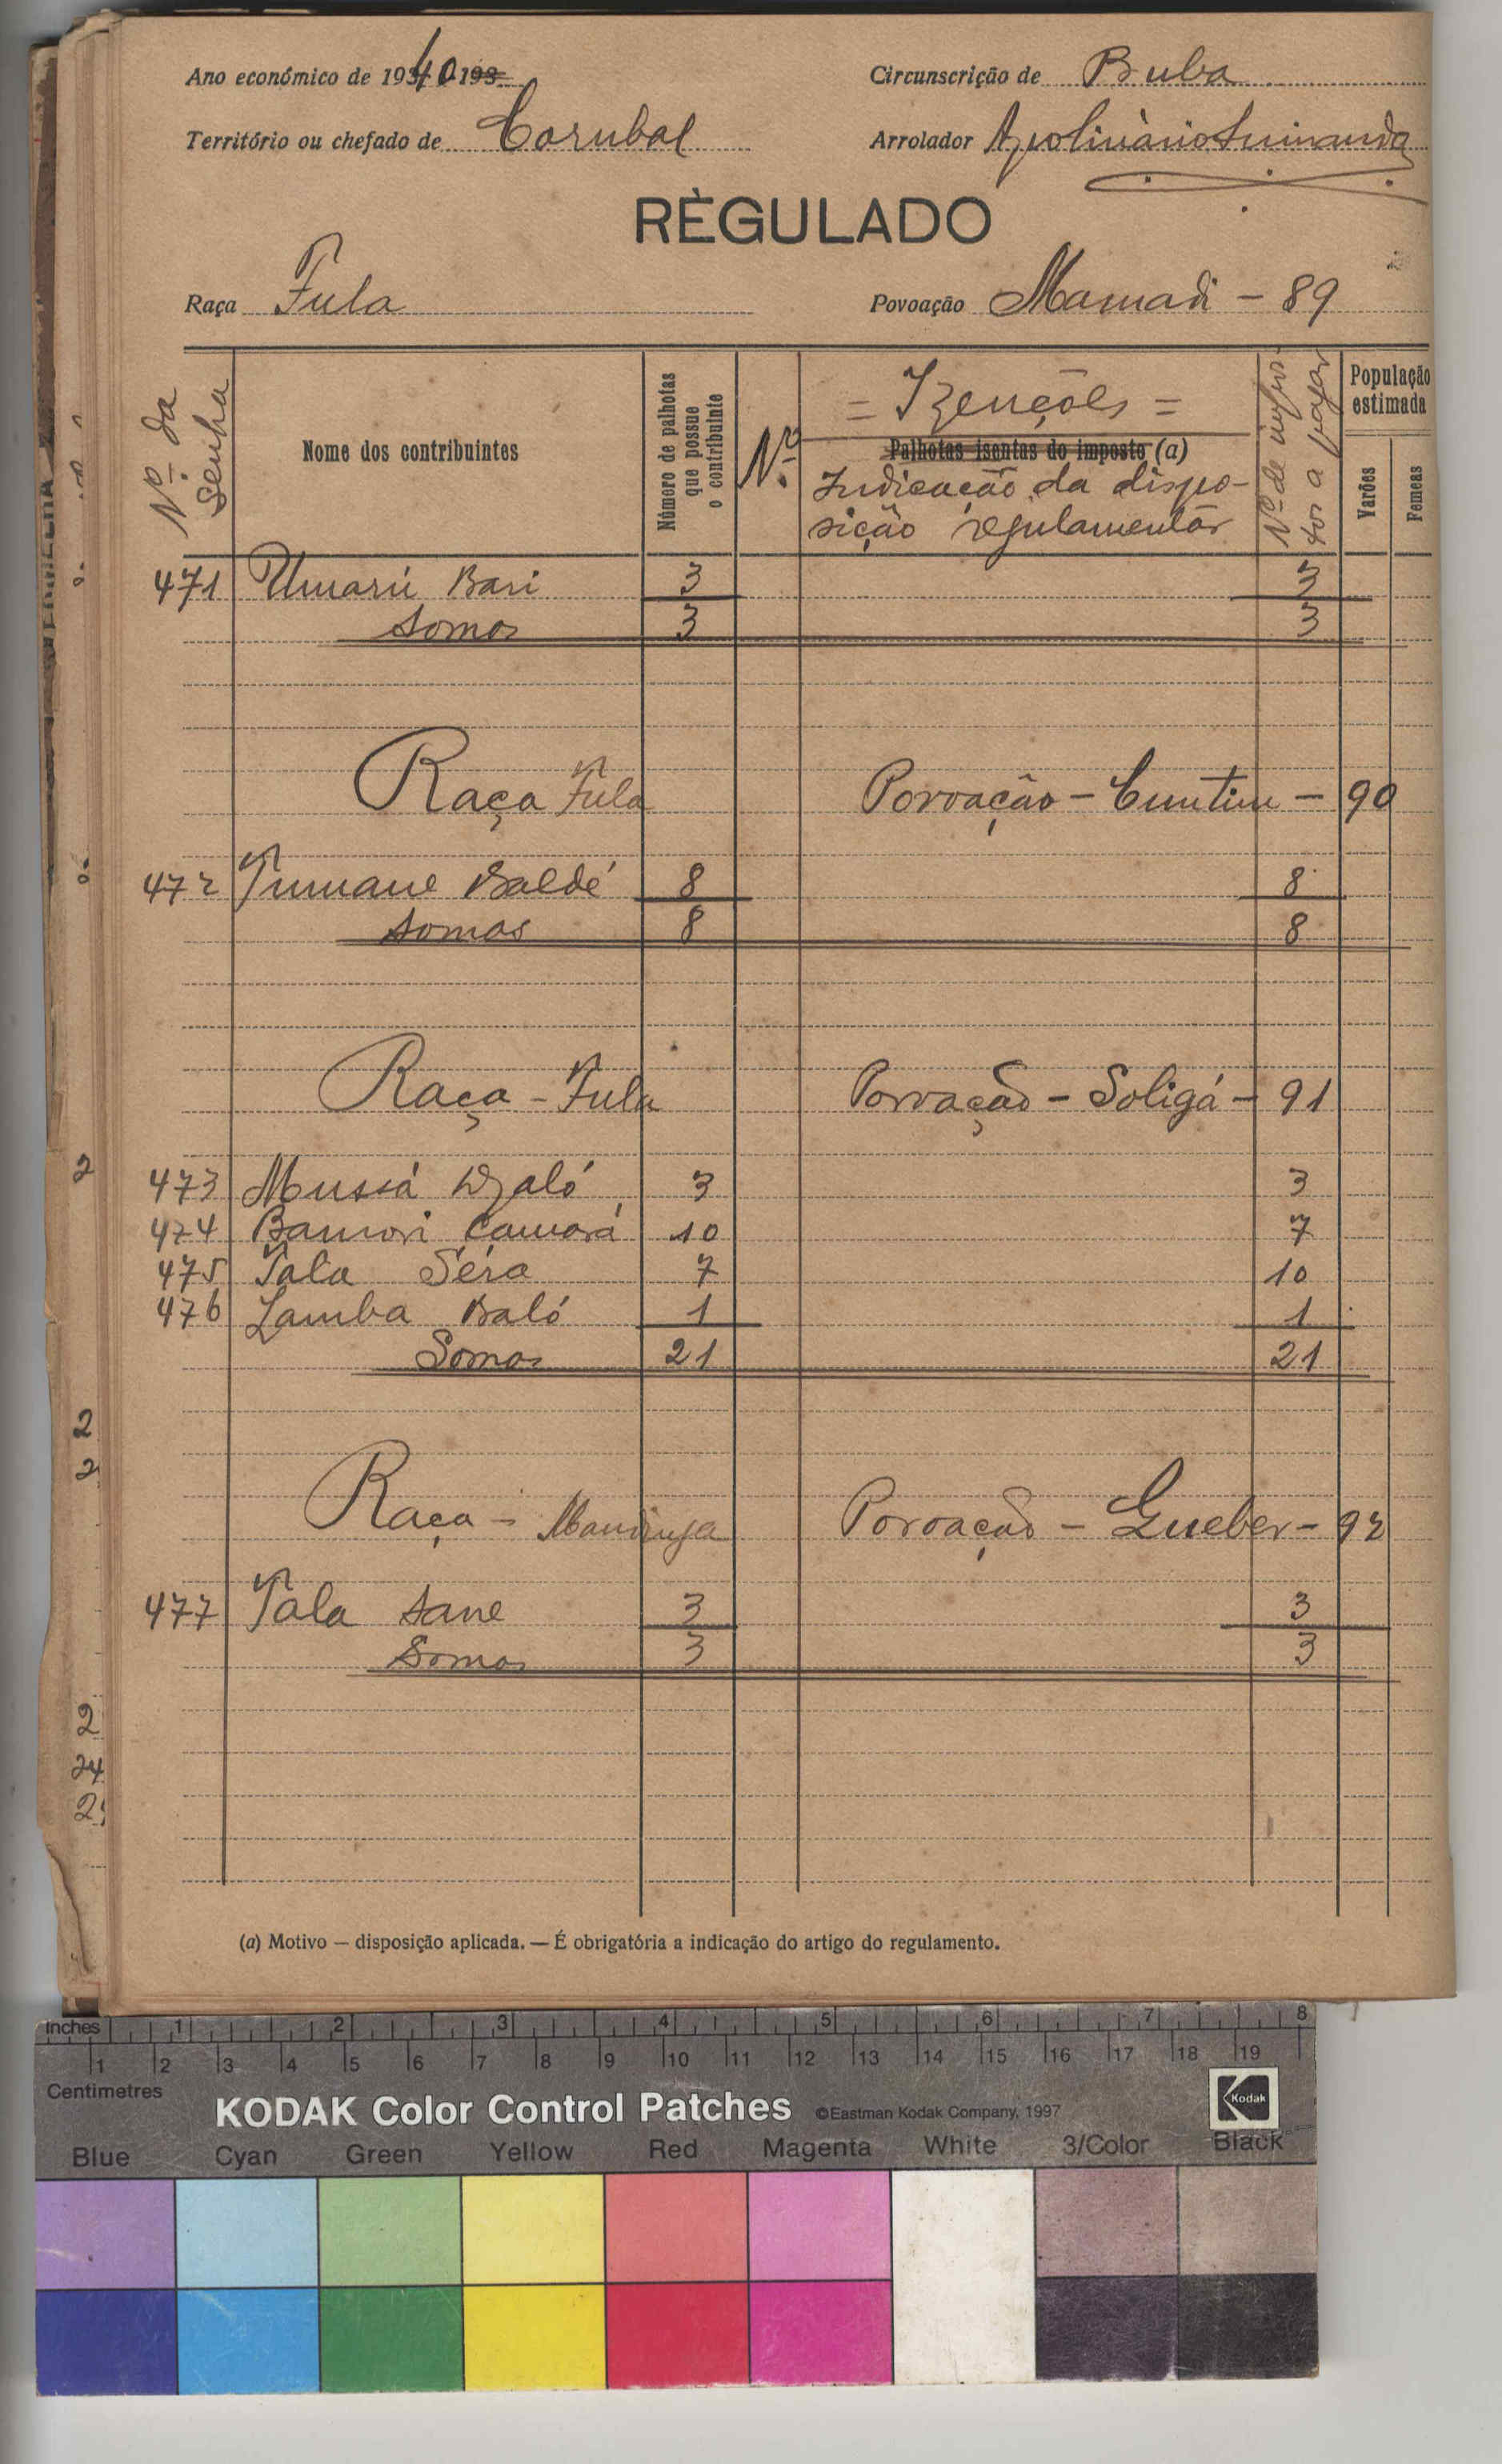 Ano económico de 1940 193
Circunscrição de Buba
Território ou chefado de Corubal
Arrolador Apolinário
RÈGULADO
Raça Fula
Povoação Mamadi - 89
Nº da Senha
Nome dos contribuintes
Número de palhotas que possue o contribuinte
Nº
= Izenções =
Palhotas isentas do imposto (a)
Indicação da dispo-
sição regulamentar
Nº de impos-
tos a pagar
População estimada
Varões
Femeas
471 Umarú Bari 3 3
Somas 3 3
Raça Fula Povoação - Cuntim - 90
472 Tumane Baldé 8 8
Somas 8 8
Raça - Fula Povoação - Soligá - 91
473 Mussá Djaló 3 3
474 Bamori Camará 10 7
475 Tala Séra 7 10
476 Lamba Baló 1 1
Somas 21 21
Raça - Mandinga Povoação - Gueber - 92
477 Tala Sane 3 3
Somas 3 3
(a) Motivo — disposição aplicada. — É obrigatória a indicação do artigo do regulamento.
2
2
2
2
24
Inches 1 2 3 4 5 6 7 8
1 2 3 4 5 6 7 8 9 10 11 12 13 14 15 16 17 18 19
Centimetres
KODAK Color Control Patches ©Eastman Kodak Company, 1997 Kodak
Blue Cyan Green Yellow Red Magenta White 3/Color Black